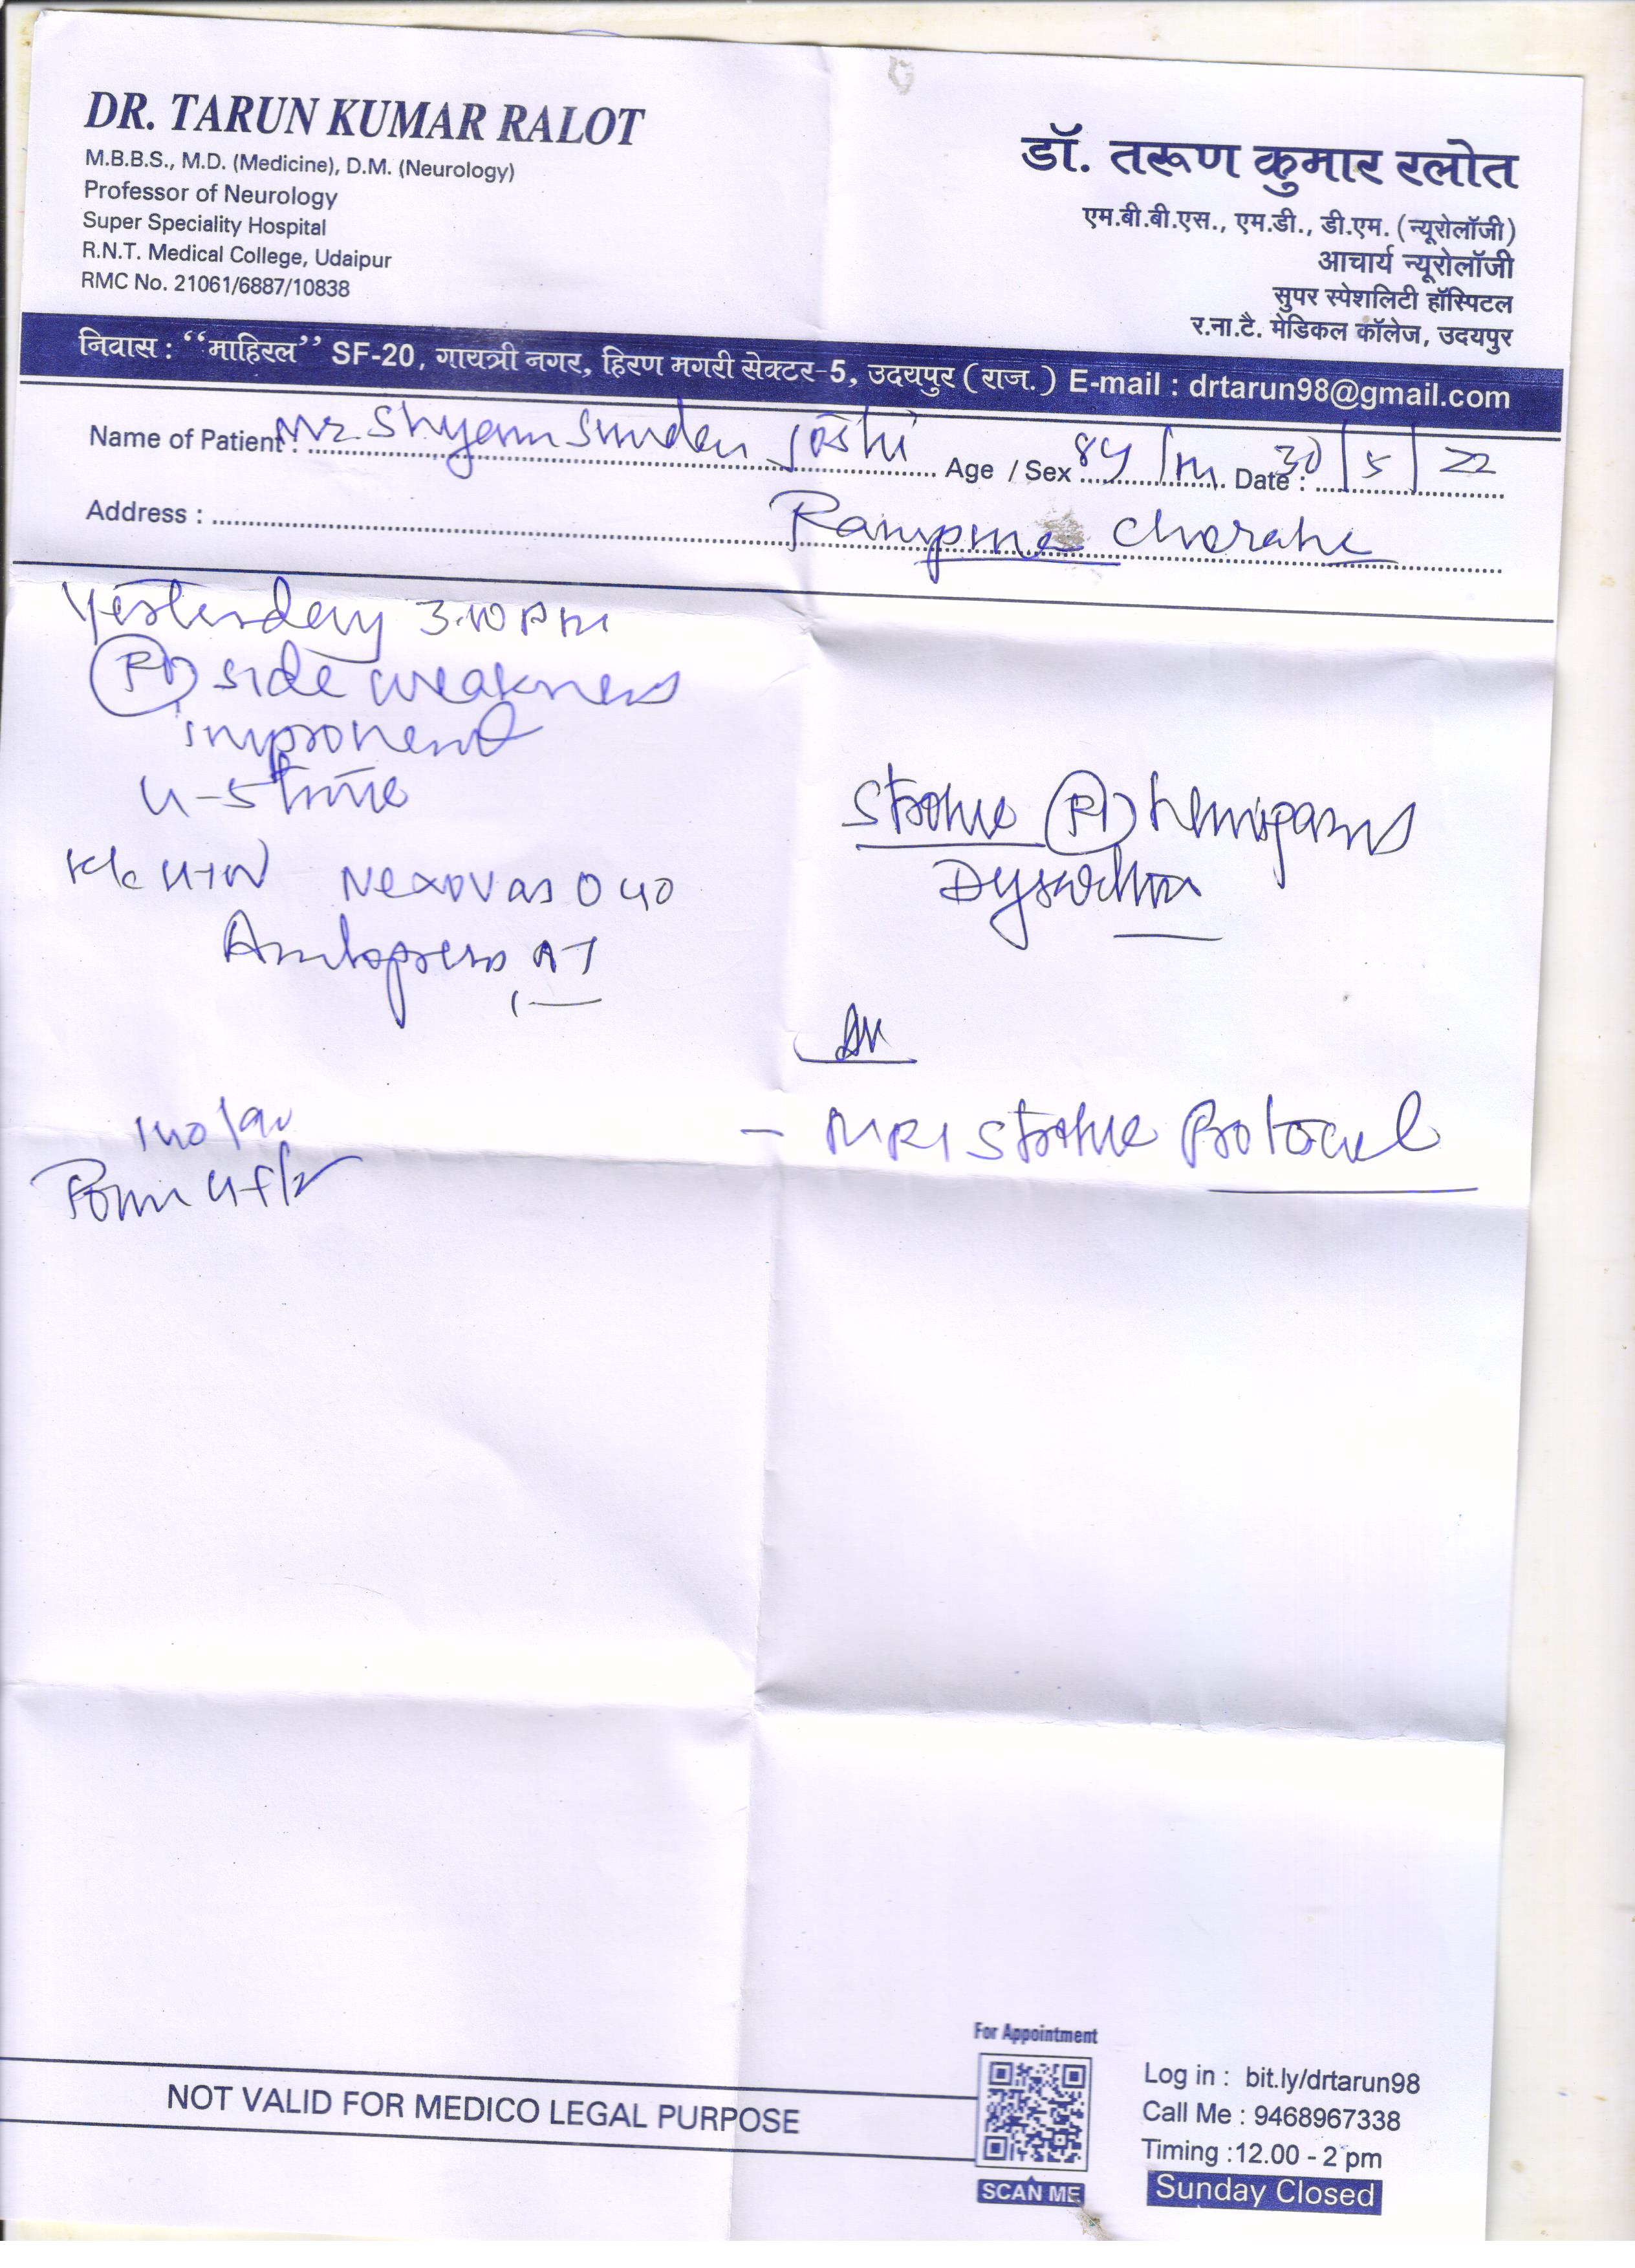 DR. TARUN KUMAR RALOT
M.B.B.S., M.D. (Medicine), D.M. (Neurology)
Professor of Neurology
Super Speciality Hospital
R.N.T. Medical College, Udaipur
RMC No. 21061/6887/10838
डॉ. तरूण कुमार रलोत
एम.बी.बी.एस., एम.डी., डी.एम. (न्यूरोलॉजी)
आचार्य न्यूरोलॉजी
सुपर स्पेशलिटी हॉस्पिटल
र.ना.टै. मेडिकल कॉलेज, उदयपुर
निवास : “माहिरल” SF-20, गायत्री नगर, हिरण मगरी सेक्टर-5, उदयपुर (राज.) E-mail : drtarun98@gmail.com
Name of Patient : Mr. Shyam Sunder Joshi Age / Sex 84/m Date : 30/5/22
Address : Rampura Choraha
Yesterday 3.10 PM
Rt side weakness
improved
K/c HTN Nexovas O 40
Amlopress AT
140/90
Power 4+/5
Stroke Rt hemiparesis
Dysarthria
Adv
- MRI Stroke Protocol
NOT VALID FOR MEDICO LEGAL PURPOSE
For Appointment
SCAN ME
Log in : bit.ly/drtarun98
Call Me : 9468967338
Timing :12.00 - 2 pm
Sunday Closed